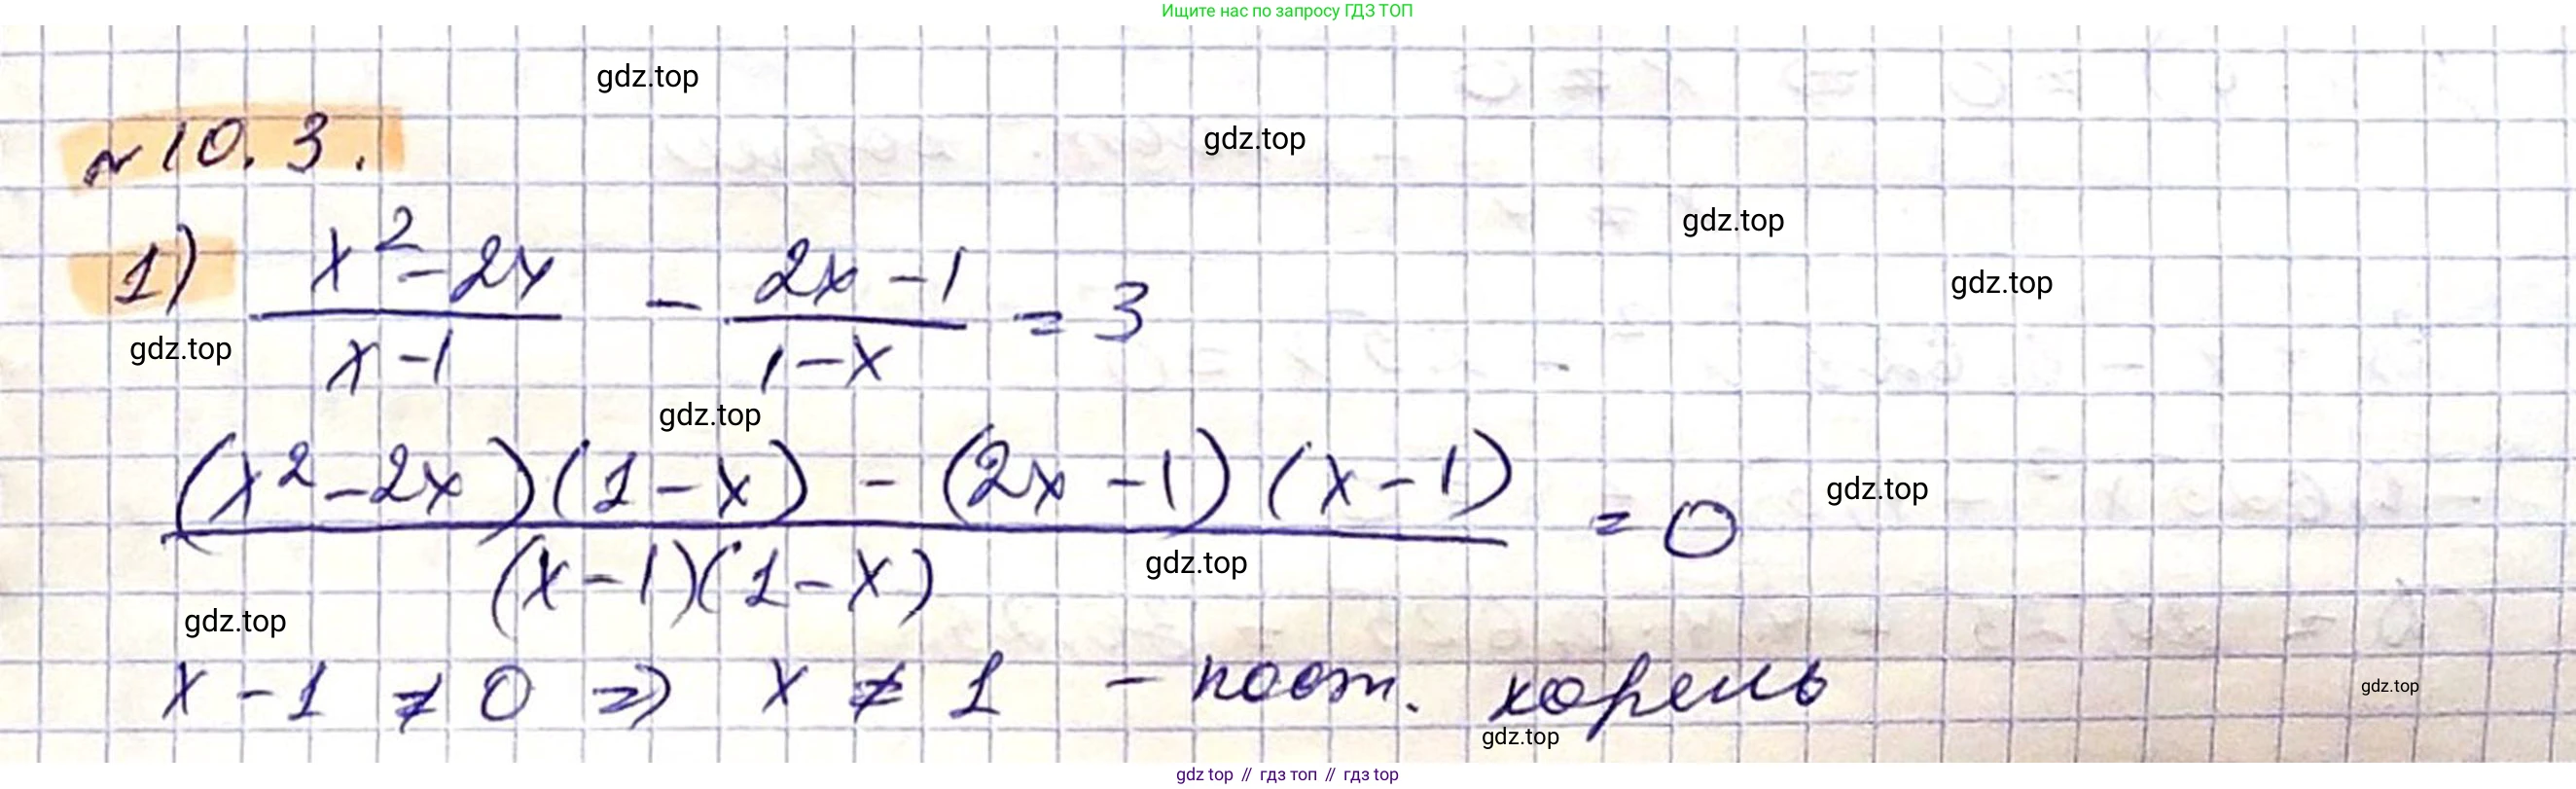 Ищите нас по запросу ГДЗ ТОП
gdz.top
gdz.top
№10.3.
gdz.top
1) (x²-2x)/(x-1) - (2x-1)/(1-x) = 3
gdz.top
gdz.top
gdz.top
((x²-2x)(1-x) - (2x-1)(x-1))/((x-1)(1-x)) = 0
gdz.top
gdz.top
gdz.top
x-1 ≠ 0 => x ≠ 1 - пост. корень
gdz.top
gdz.top
gdz top // гдз топ // гдз top